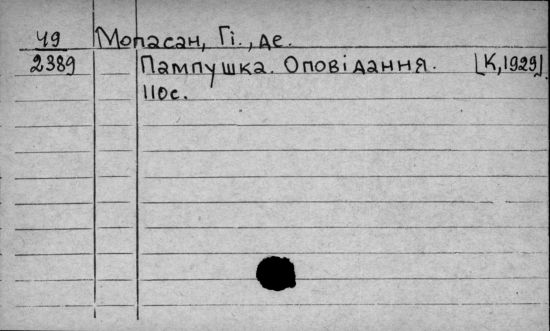 Ч9 Мопасан, Гі., де.
2389 Пампушка. Оповідання. [К, 1929].
110с.